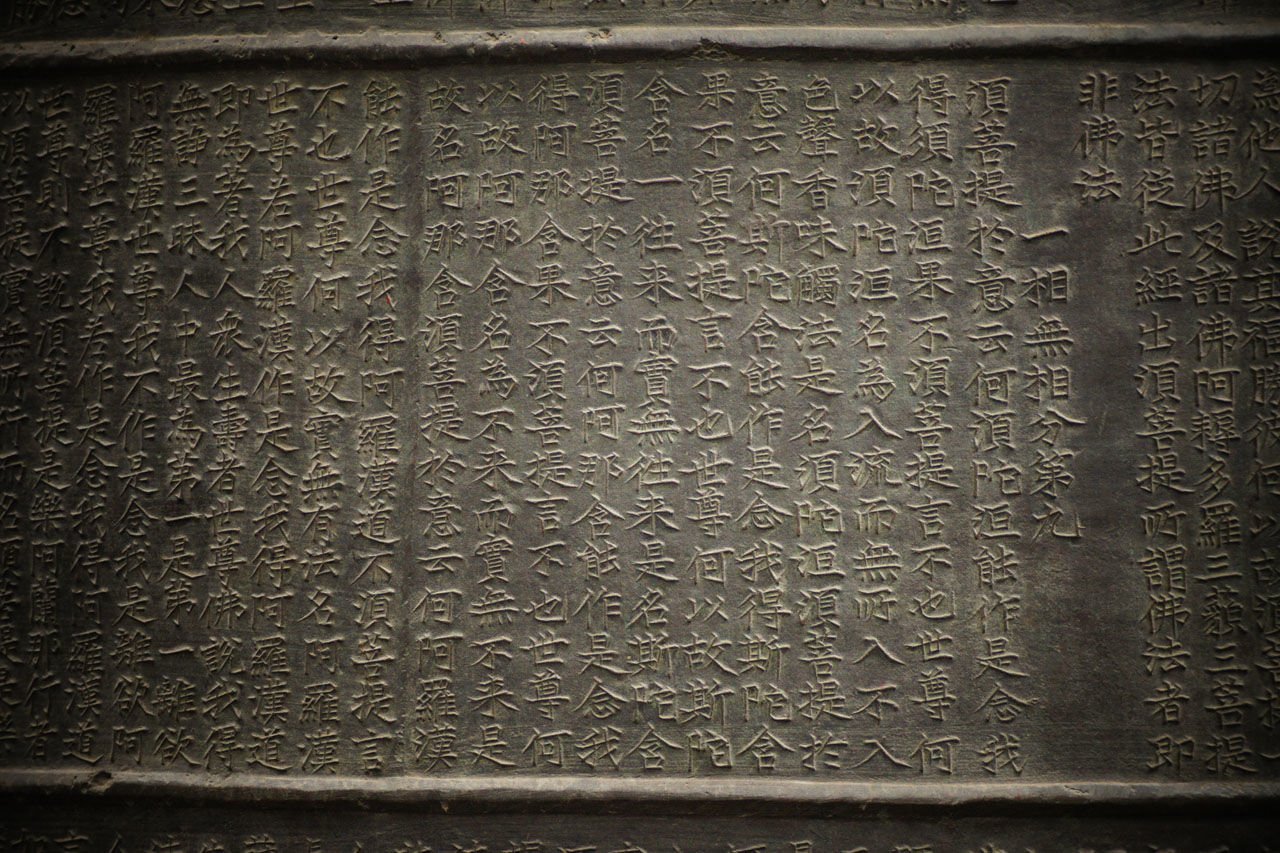 為他人說其福勝彼何以故須菩提一
切諸佛及諸佛阿耨多羅三藐三菩提
法皆從此經出須菩提所謂佛法者即
非佛法
一相無相分第九
須菩提於意云何須陀洹能作是念我
得須陀洹果不須菩提言不也世尊何
以故須陀洹名為入流而無所入不入
色聲香味觸法是名須陀洹須菩提於
意云何斯陀含能作是念我得斯陀含
果不須菩提言不也世尊何以故斯陀
含名一往来而實無往来是名斯陀含
須菩提於意云何阿那含能作是念我
得阿那含果不須菩提言不也世尊何
以故阿那含名為不来而實無不来是
故名阿那含須菩提於意云何阿羅漢
能作是念我得阿羅漢道不須菩提言
不也世尊何以故實無有法名阿羅漢
世尊若阿羅漢作是念我得阿羅漢道
即為著我人衆生壽者世尊佛說我得
無諍三昧人中最為第一是第一離欲
阿羅漢世尊我不作是念我是離欲阿
羅漢世尊我若作是念我得阿羅漢道
世尊則不說須菩提是樂阿蘭那行者
以須菩提實無所行而名須菩提是樂